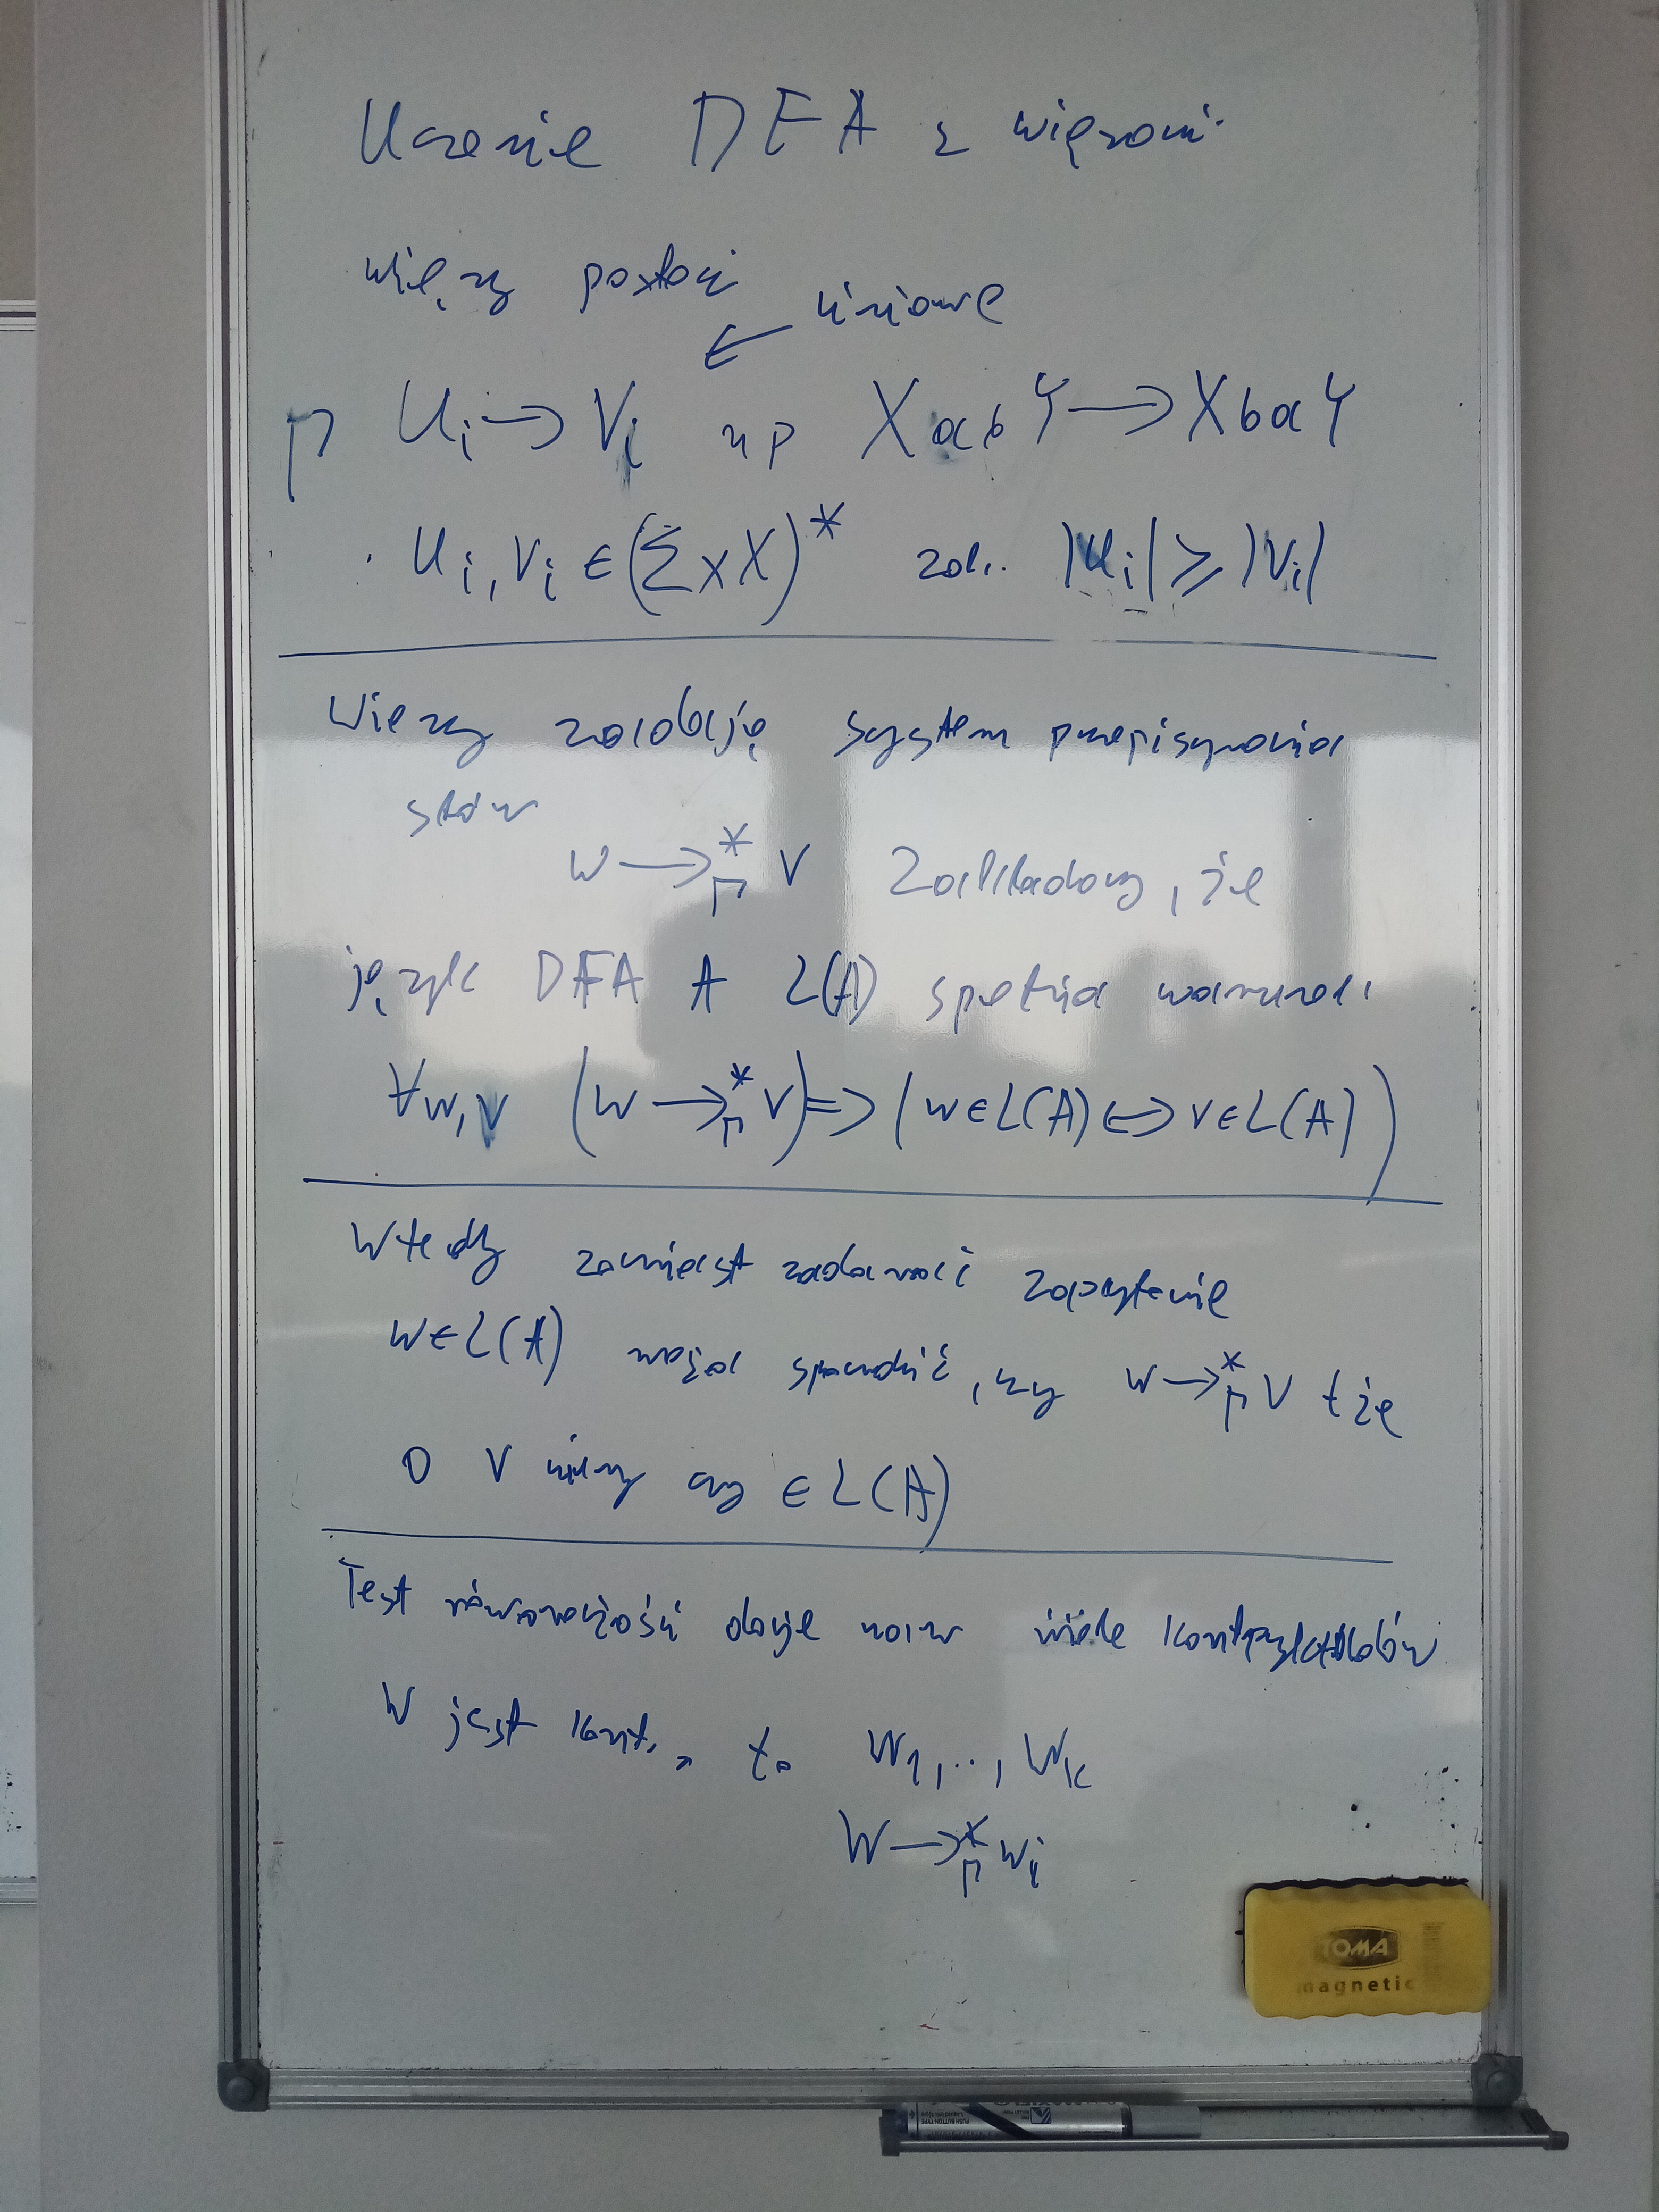 Uczenie DFA z więzami
więzy postaci
liniowe
Γ Ui → Vi np XabY → XbaY
Ui, Vi ∈ (Σ x X)* zał. |Ui| ≥ |Vi|
Więzy zadają system przepisywania
słów
w →*Γ v Zakładamy, że
język DFA A L(A) spełnia warunek
∀w,v (w →*Γ v) => (w ∈ L(A) <=> v ∈ L(A))
Wtedy zamiast zadawać zapytanie
w ∈ L(A) można sprawdzić, czy w →*Γ v t że
o v wiemy czy ∈ L(A)
Test równoważność daje nam wiele kontrprzykładów
W jest kont., to W1, .., Wk
W →*Γ wi
TOMA
magnetic